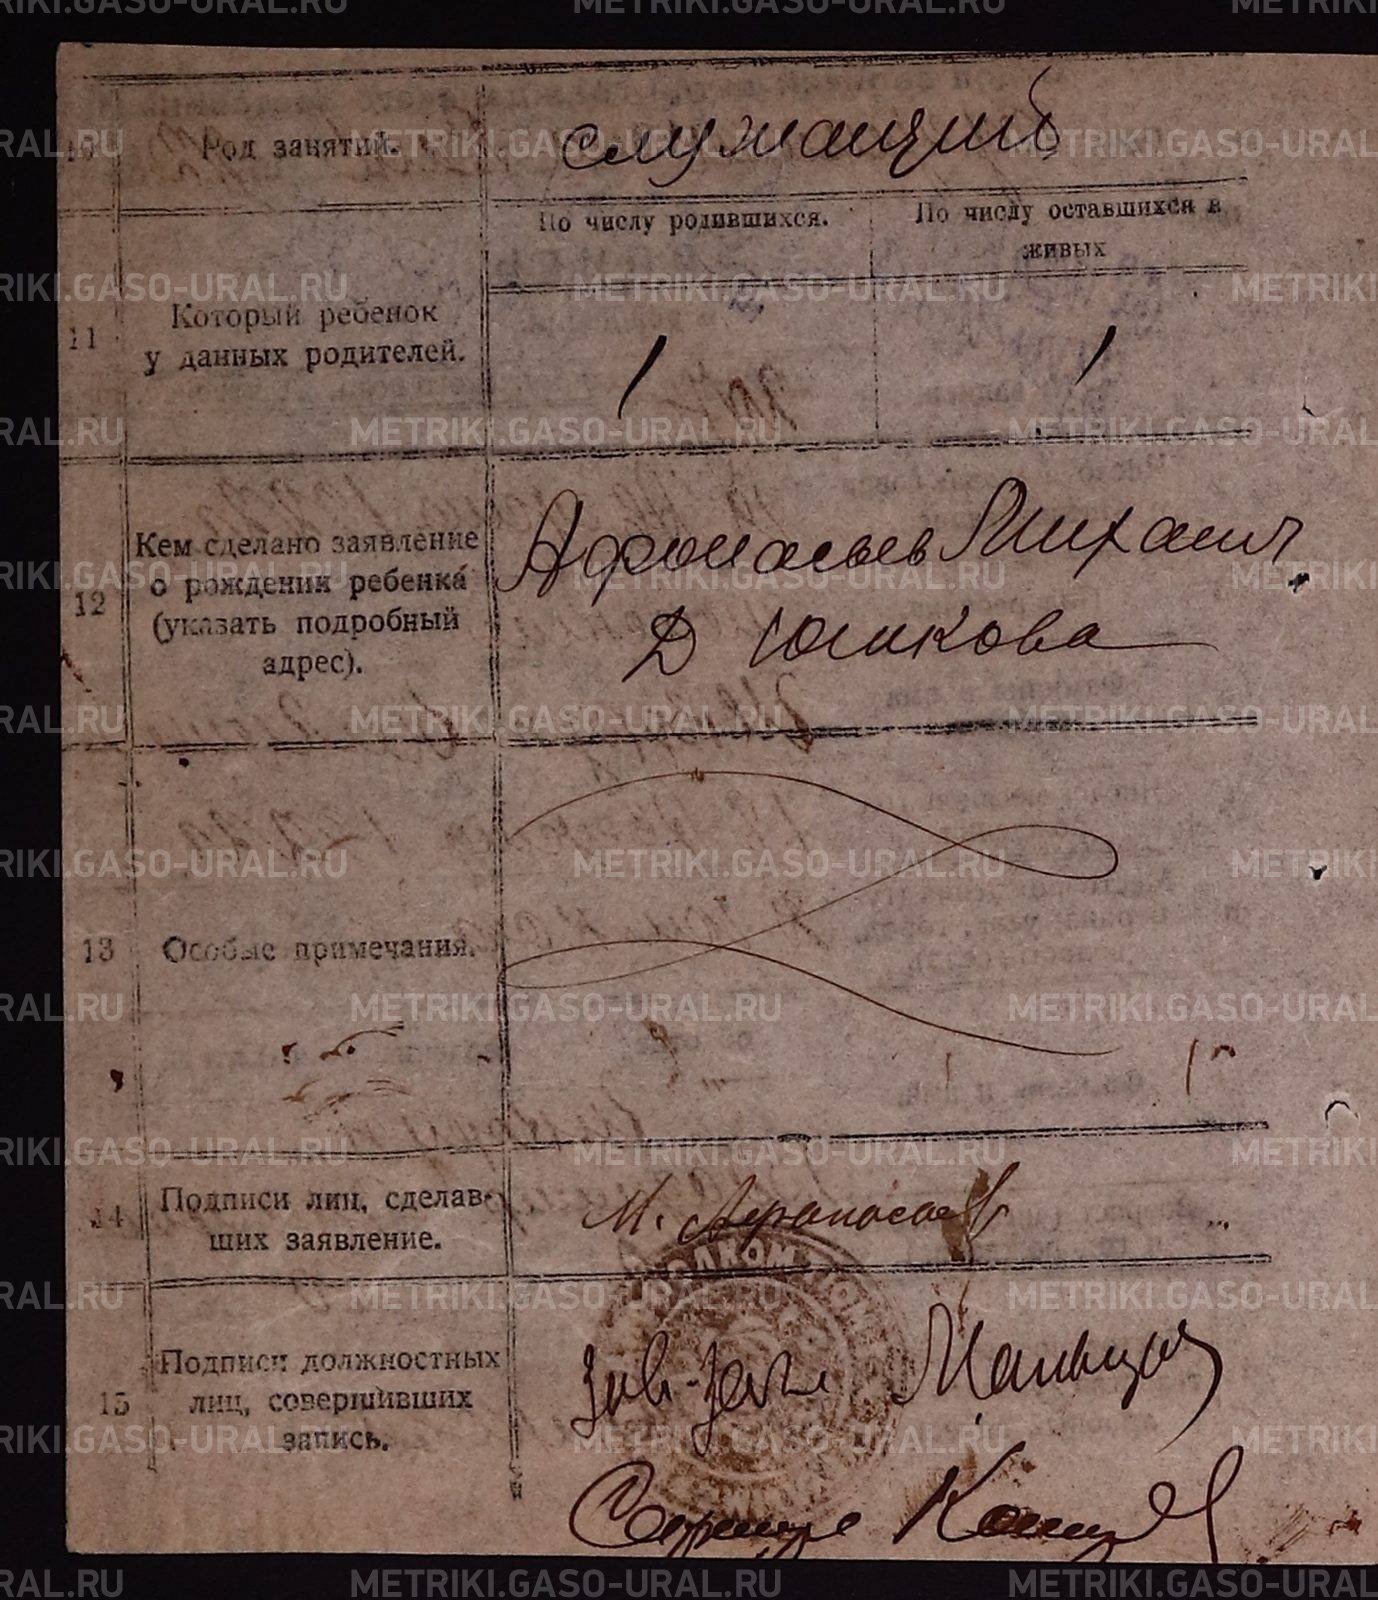 METRIKI.GASO-URAL.RU
10 Род занятий. служащий
По числу родившихся. По числу оставшихся в
живых
11 Который ребенок
у данных родителей. 1 1
12 Кем сделано заявление
о рождении ребенка
(указать подробный
адрес).
Афонасьев Михаил
Д Юшкова
13 Особые примечания.
14 Подписи лиц, сделав-
ших заявление.
М. Афонасьев
15 Подписи должностных
лиц, совершивших
запись.
Мальцов